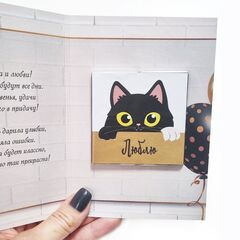 а и любви!
будут все дни.
венья, удачи
ого в придачу!
дарила улыбки,
яла ошибки.
а будет классно,
но так прекрасна!
Люблю